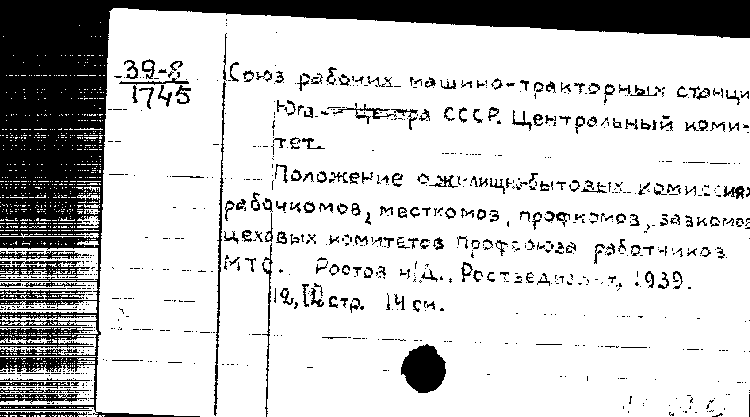 39-8
1745
Союз рабочих машино-тракторных станци
Юга - Центра СССР. Центральный коми-
тет.
Положение о жилищно-бытовых комиссиях
рабочкомов, месткомов, профкомов, завкомов
цеховых комитетов Профсоюза работников
МТС. Ростов н/Д., 1939.
12, [1] стр. 14 см.